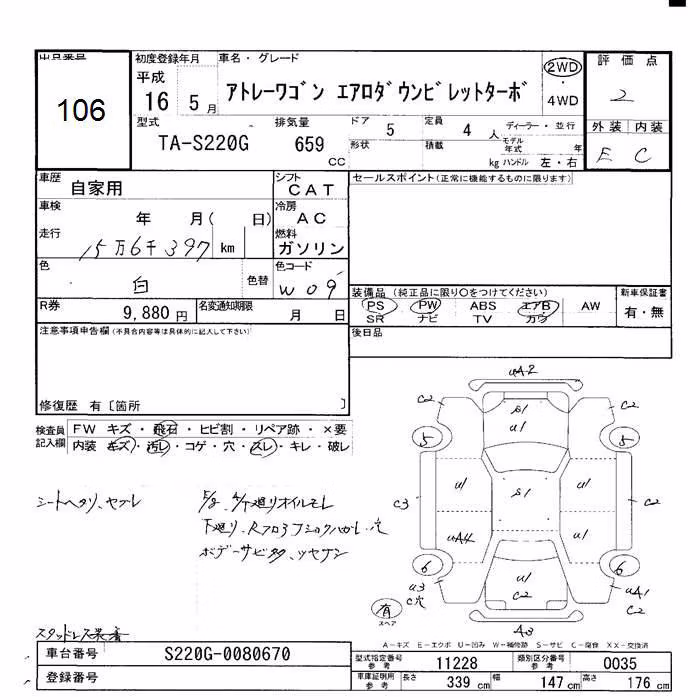 出品番号
106
初度登録年月
平成
16 5 月
車名・グレード
アトレーワゴン エアロダウンビレットターボ
2WD
4WD
評価点
2
型式
TA-S220G
排気量
659
CC
ドア 5
形状
定員 4 人
積載 kg
ディーラー・並行
モデル年式 年
ハンドル 左・右
外装 内装
E C
車歴
自家用
シフト
CAT
セールスポイント(正常に機能するものに限ります)
車検
年 月( 日)
冷房
AC
走行
15万6千397 km
燃料
ガソリン
色
白
色替
色コード
W09
装備品 (純正品に限り○をつけてください)
PS PW ABS エアB AW
SR ナビ TV カワ
新車保証書
有・無
R券
9,880 円
名変通知期限
月 日
後日品
注意事項申告欄(不具合内容等は具体的に記入して下さい)
修復歴 有〔箇所 〕
検査員記入欄
FW キズ・飛石・ヒビ割・リペア跡・×要
内装 キズ・汚レ・コゲ・穴・スレ・キレ・破レ
シートヘタリ、ヤブレ
下廻り、
ボデーサビ
スタッドレス装着
UA2
C2
C2
S1
U1
5
5
U1
S1
U1
C3
C2
UA4
U1
6
6
U1
C2
U3
C穴
UA1
C2
有
スペア
A3
A-キズ E-エクボ U-凹み W-補修跡 S-サビ C-腐食 XX-交換済
車台番号
S220G-0080670
登録番号
型式指定番号
参考
11228
類別区分番号
参考
0035
車庫証明用
参考
長さ 339 cm
幅 147 cm
高さ 176 cm